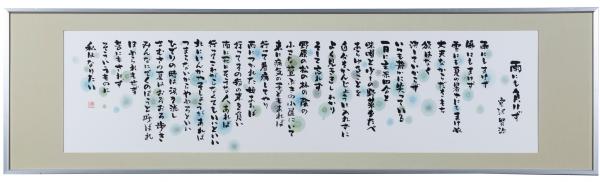 雨にも負けず
宮沢賢治
雨にもまけず
風にもまけず
雪にも夏の暑さにもまけぬ
丈夫なからだをもち
慾はなく
決していからず
いつも静かに笑っている
一日に玄米四合と
味噌と少しの野菜をたべ
あらゆることを
自分をかんじょうに入れずに
よく見ききしわかり
そして忘れず
野原の松の林の蔭の
小さな萱ぶきの小屋にいて
東に病気の子どもあれば
行って看病してやり
西に疲れた母あれば
行ってその稲の束を負い
南に死にそうな人あれば
行ってこわがらなくてもいいといい
北にけんかやそしょうがあれば
つまらないからやめろといい
ひでりの時は涙を流し
寒さの夏はおろおろ歩き
みんなにでくのぼうと呼ばれ
ほめられもせず
苦にもされず
そういうものに
私はなりたい